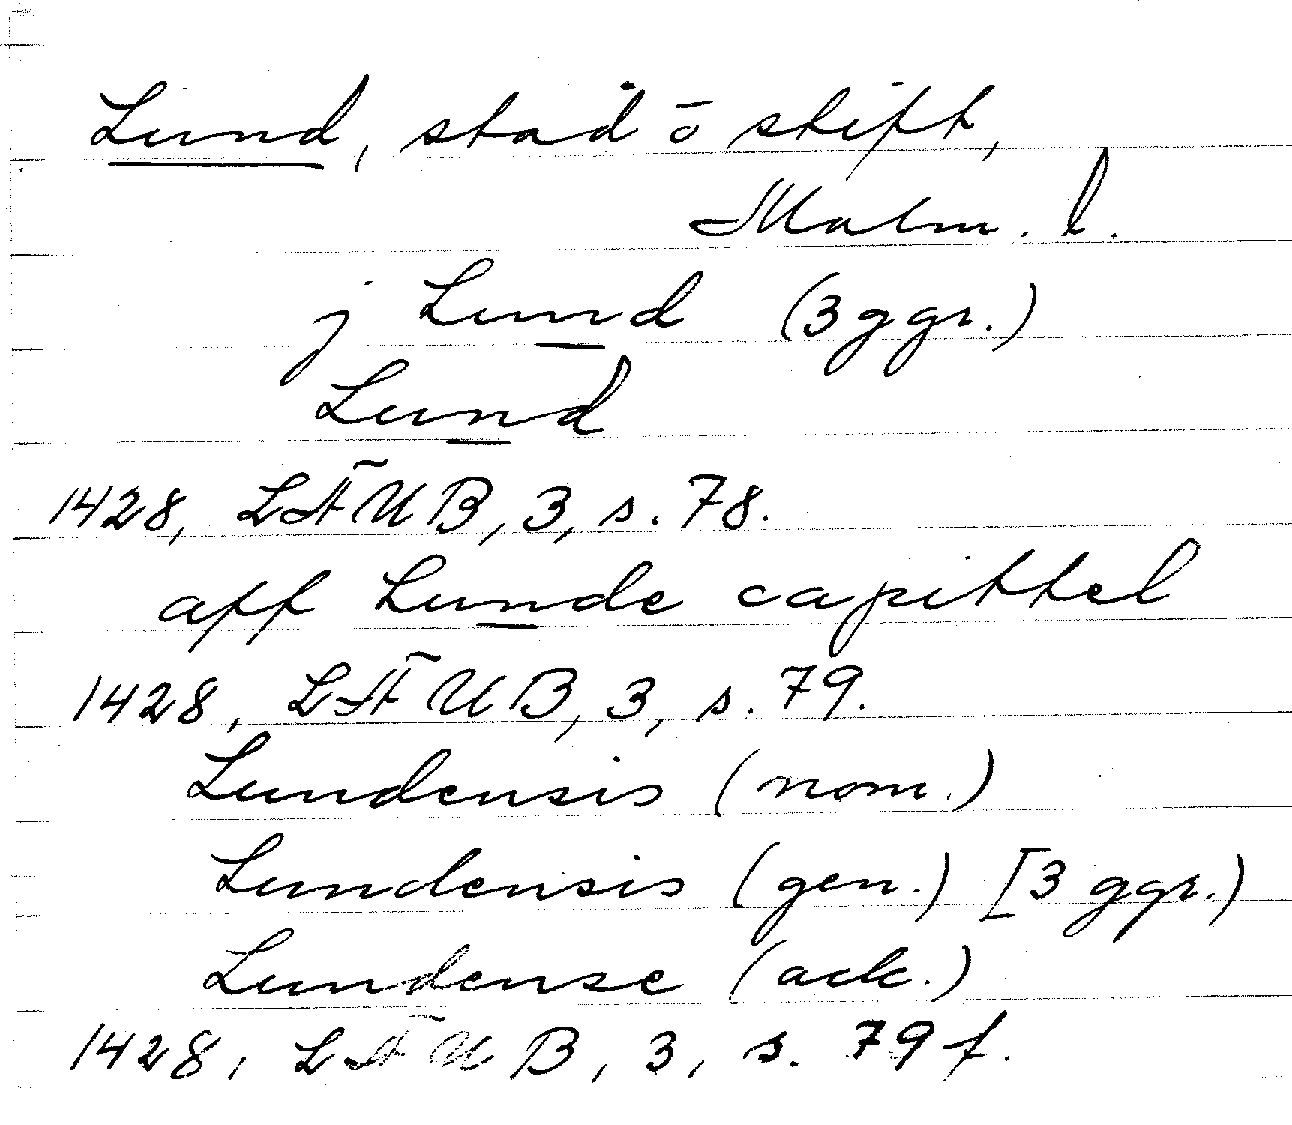 Lund, stad ō stift,
Malm. l.
j Lund (3 ggr.)
Lund
1428, LÄUB, 3, s. 78.
aff Lunde capittel
1428, LÄUB, 3, s. 79.
Lundensis (nom.)
Lundensis (gen.) [3 ggr.)
Lundense (ack.)
1428, LÄUB, 3, s. 79 f.